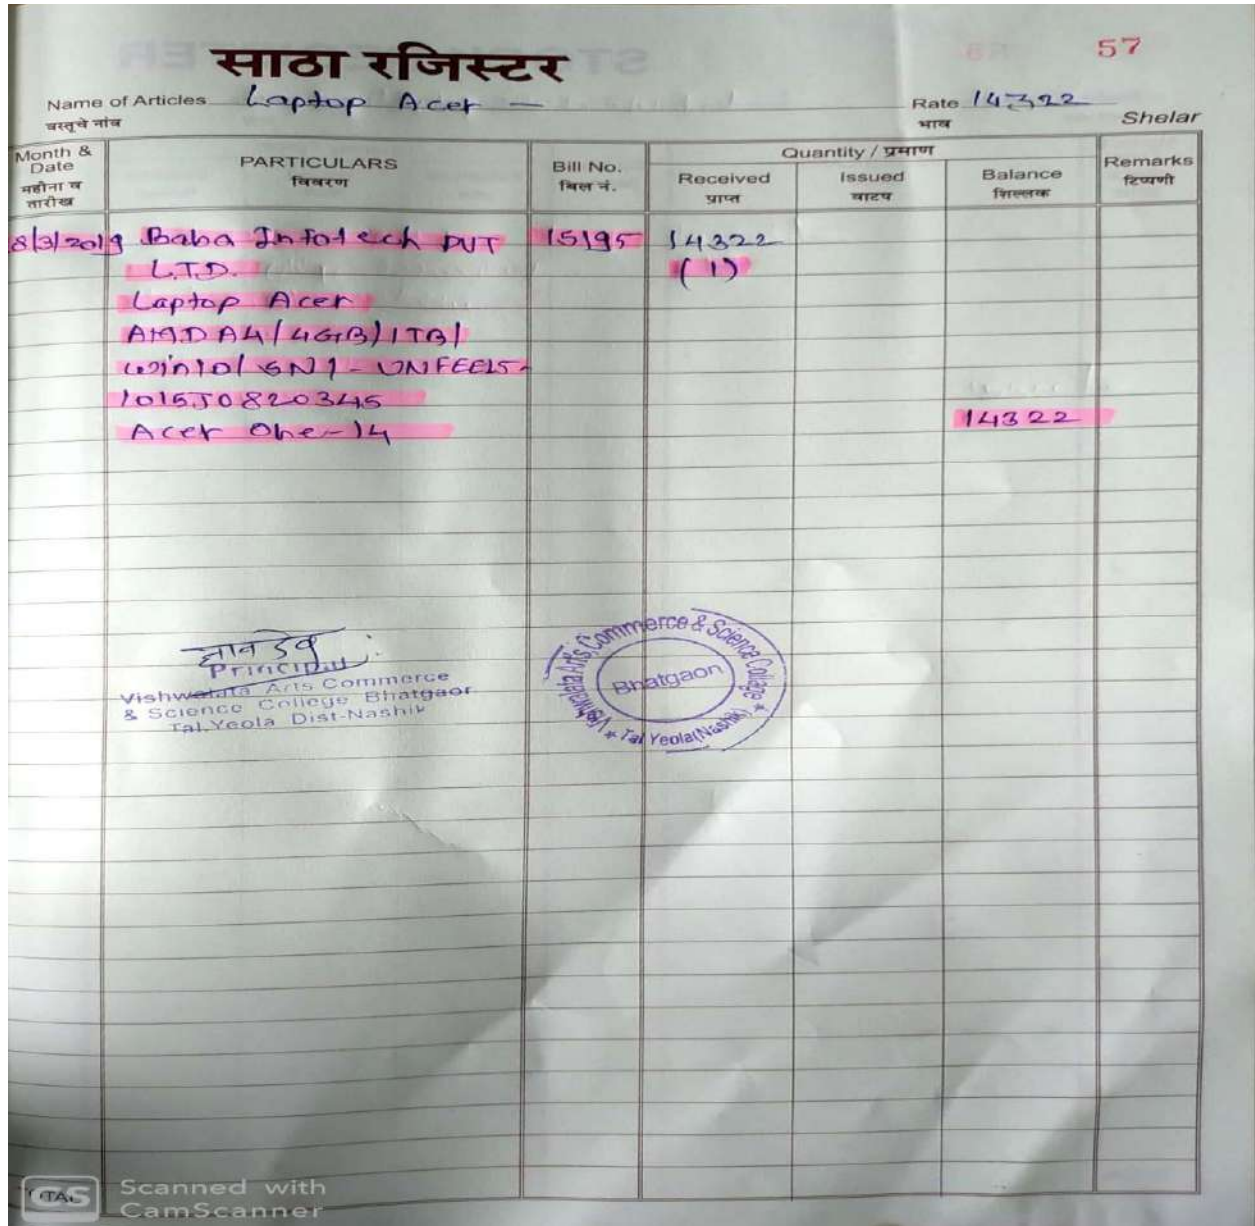 57
साठा रजिस्टर
Name of Articles Laptop Acer —
वस्तूचे नांव
Rate 14322
भाव
Shelar
Month & Date
महीना व तारीख
PARTICULARS
विवरण
Bill No.
बिल नं.
Quantity / प्रमाण
Received
प्राप्त
Issued
वाटप
Balance
शिल्लक
Remarks
टिप्पणी
8/3/2019 Baba Infotech PVT 15195 14322
L.T.D. (1)
Laptop Acer
AMD A4/4GB/1TB/
Win10/SN1-UNFEE15-
1015J0820345
Acer One-14 14322
Principal
Vishwalata Arts Commerce
& Science College Bhatgaon
Tal.Yeola Dist-Nashik
Vishwalata Arts, Commerce & Science College
Bhatgaon
* Tal Yeola(Nashik) *
TOTAL
CS Scanned with
CamScanner